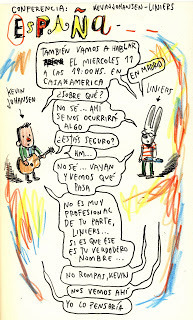 CONFERENCIA: KEVIN JOHANSEN-LINIERS
ESPAÑA-
TAMBIÉN VAMOS A HABLAR
EL MIÉRCOLES 11
A LAS 19:00HS. EN
CASAMERICA
(EN MADRID)
KEVIN
JOHANSEN
LINIERS
¿SOBRE QUÉ?
NO SÉ... AHÍ
SE NOS OCURRIRÁ
ALGO
¿ESTÁS SEGURO?
HM...
NO SÉ... VAYAN
Y VEMOS QUÉ
PASA
NO ES MUY
PROFESIONAL
DE TU PARTE,
LINIERS...
SI ES QUE ÉSE
ES TU VERDADERO
NOMBRE...
NO ROMPAS, KEVIN
NOS VEMOS AHÍ
YO LO PENSARÍA